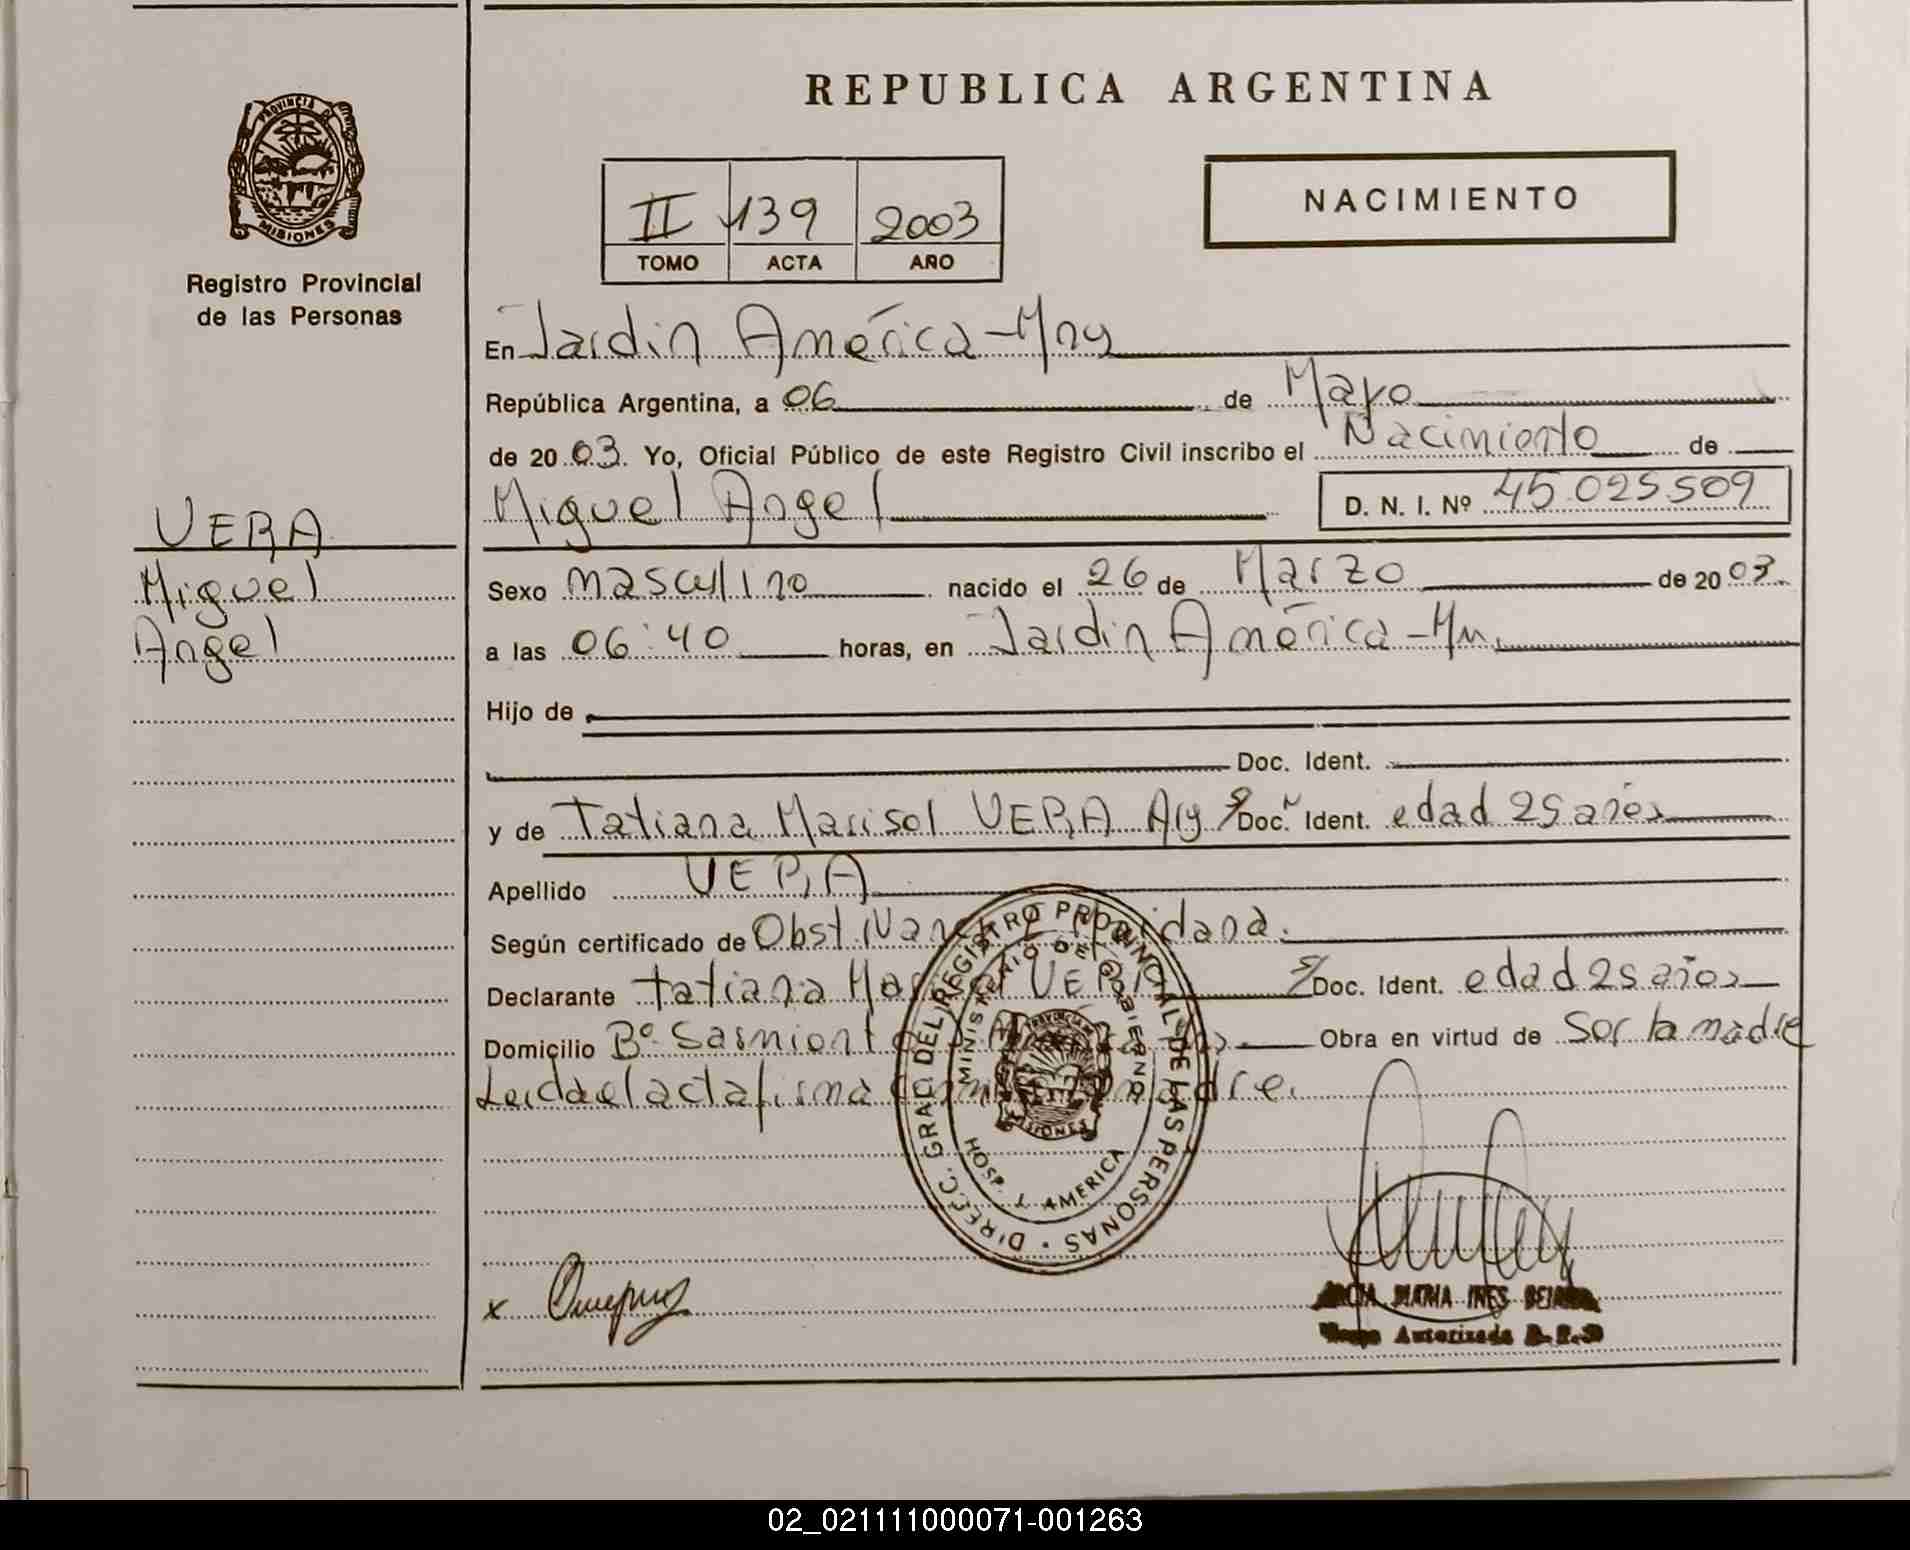 REPUBLICA ARGENTINA
PROVINCIA DE
MISIONES
Registro Provincial
de las Personas
II 139 2003
TOMO ACTA AÑO
NACIMIENTO
En Jardin América-Mns
República Argentina, a 06 de Mayo
de 2003. Yo, Oficial Público de este Registro Civil inscribo el Nacimiento de
Miguel Angel D. N. I. Nº 45.025.509
VERA
Miguel
Angel
Sexo masculino nacido el 26 de Marzo de 2003
a las 06:40 horas, en Jardin América-Mn.
Hijo de
Doc. Ident.
y de Tatiana Marisol VERA Arg Doc. Ident. edad 25 años
Apellido VERA
Según certificado de Obst.
Declarante Tatiana VERA Doc. Ident. edad 25 años
Domicilio Bº Sarmiento Obra en virtud de ser la madre
Leida el acta firma madre.
DIRECC. GRAL. DEL REGISTRO PROVINCIAL DE LAS PERSONAS
MINISTERIO DE GOBIERNO
PROVINCIA DE
MISIONES
HOSP. J. AMERICA
x
MARIA INES
Autorizada
02_021111000071-001263